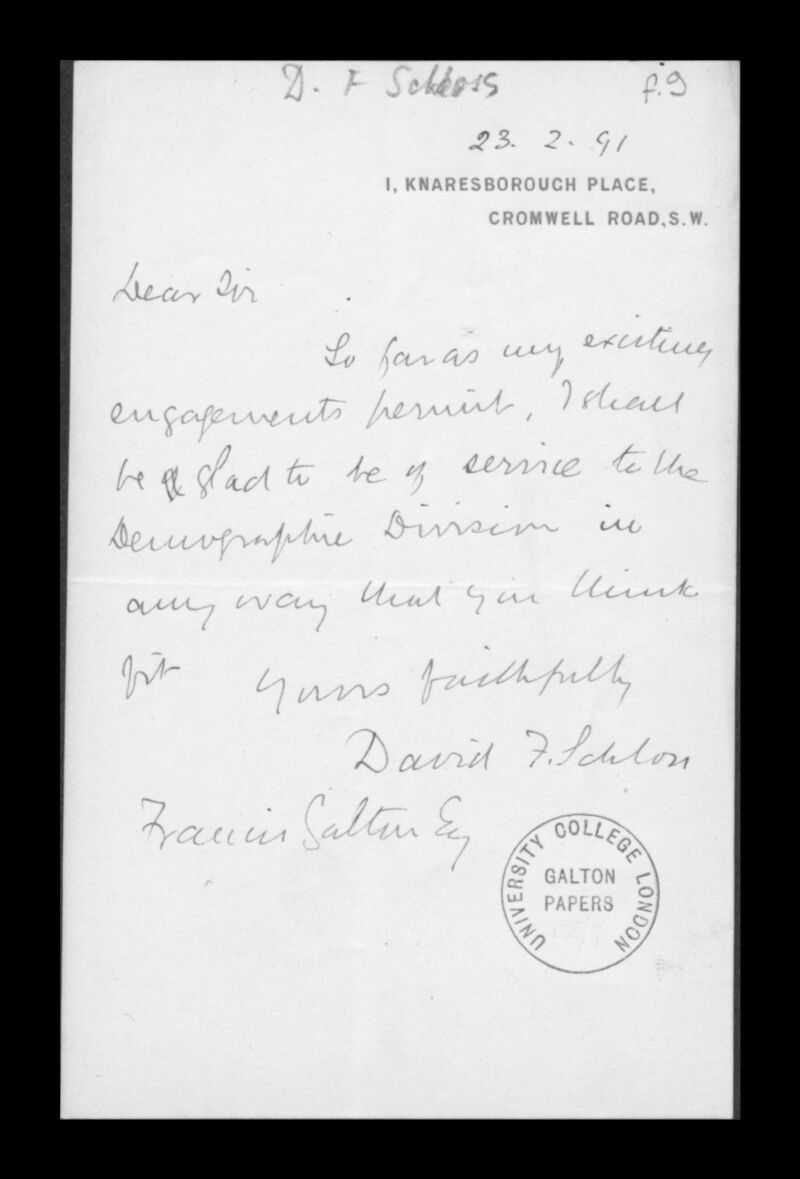 D. F Schloss
f.9
23. 2. 91
1, KNARESBOROUGH PLACE,
CROMWELL ROAD, S.W.
Dear Sir
So far as my existing
engagements permit, I shall
be glad to be of service to the
Demographic Division in
any way that you think
fit Yours faithfully
David F. Schloss
Francis Galton Esq
UNIVERSITY COLLEGE LONDON
GALTON
PAPERS